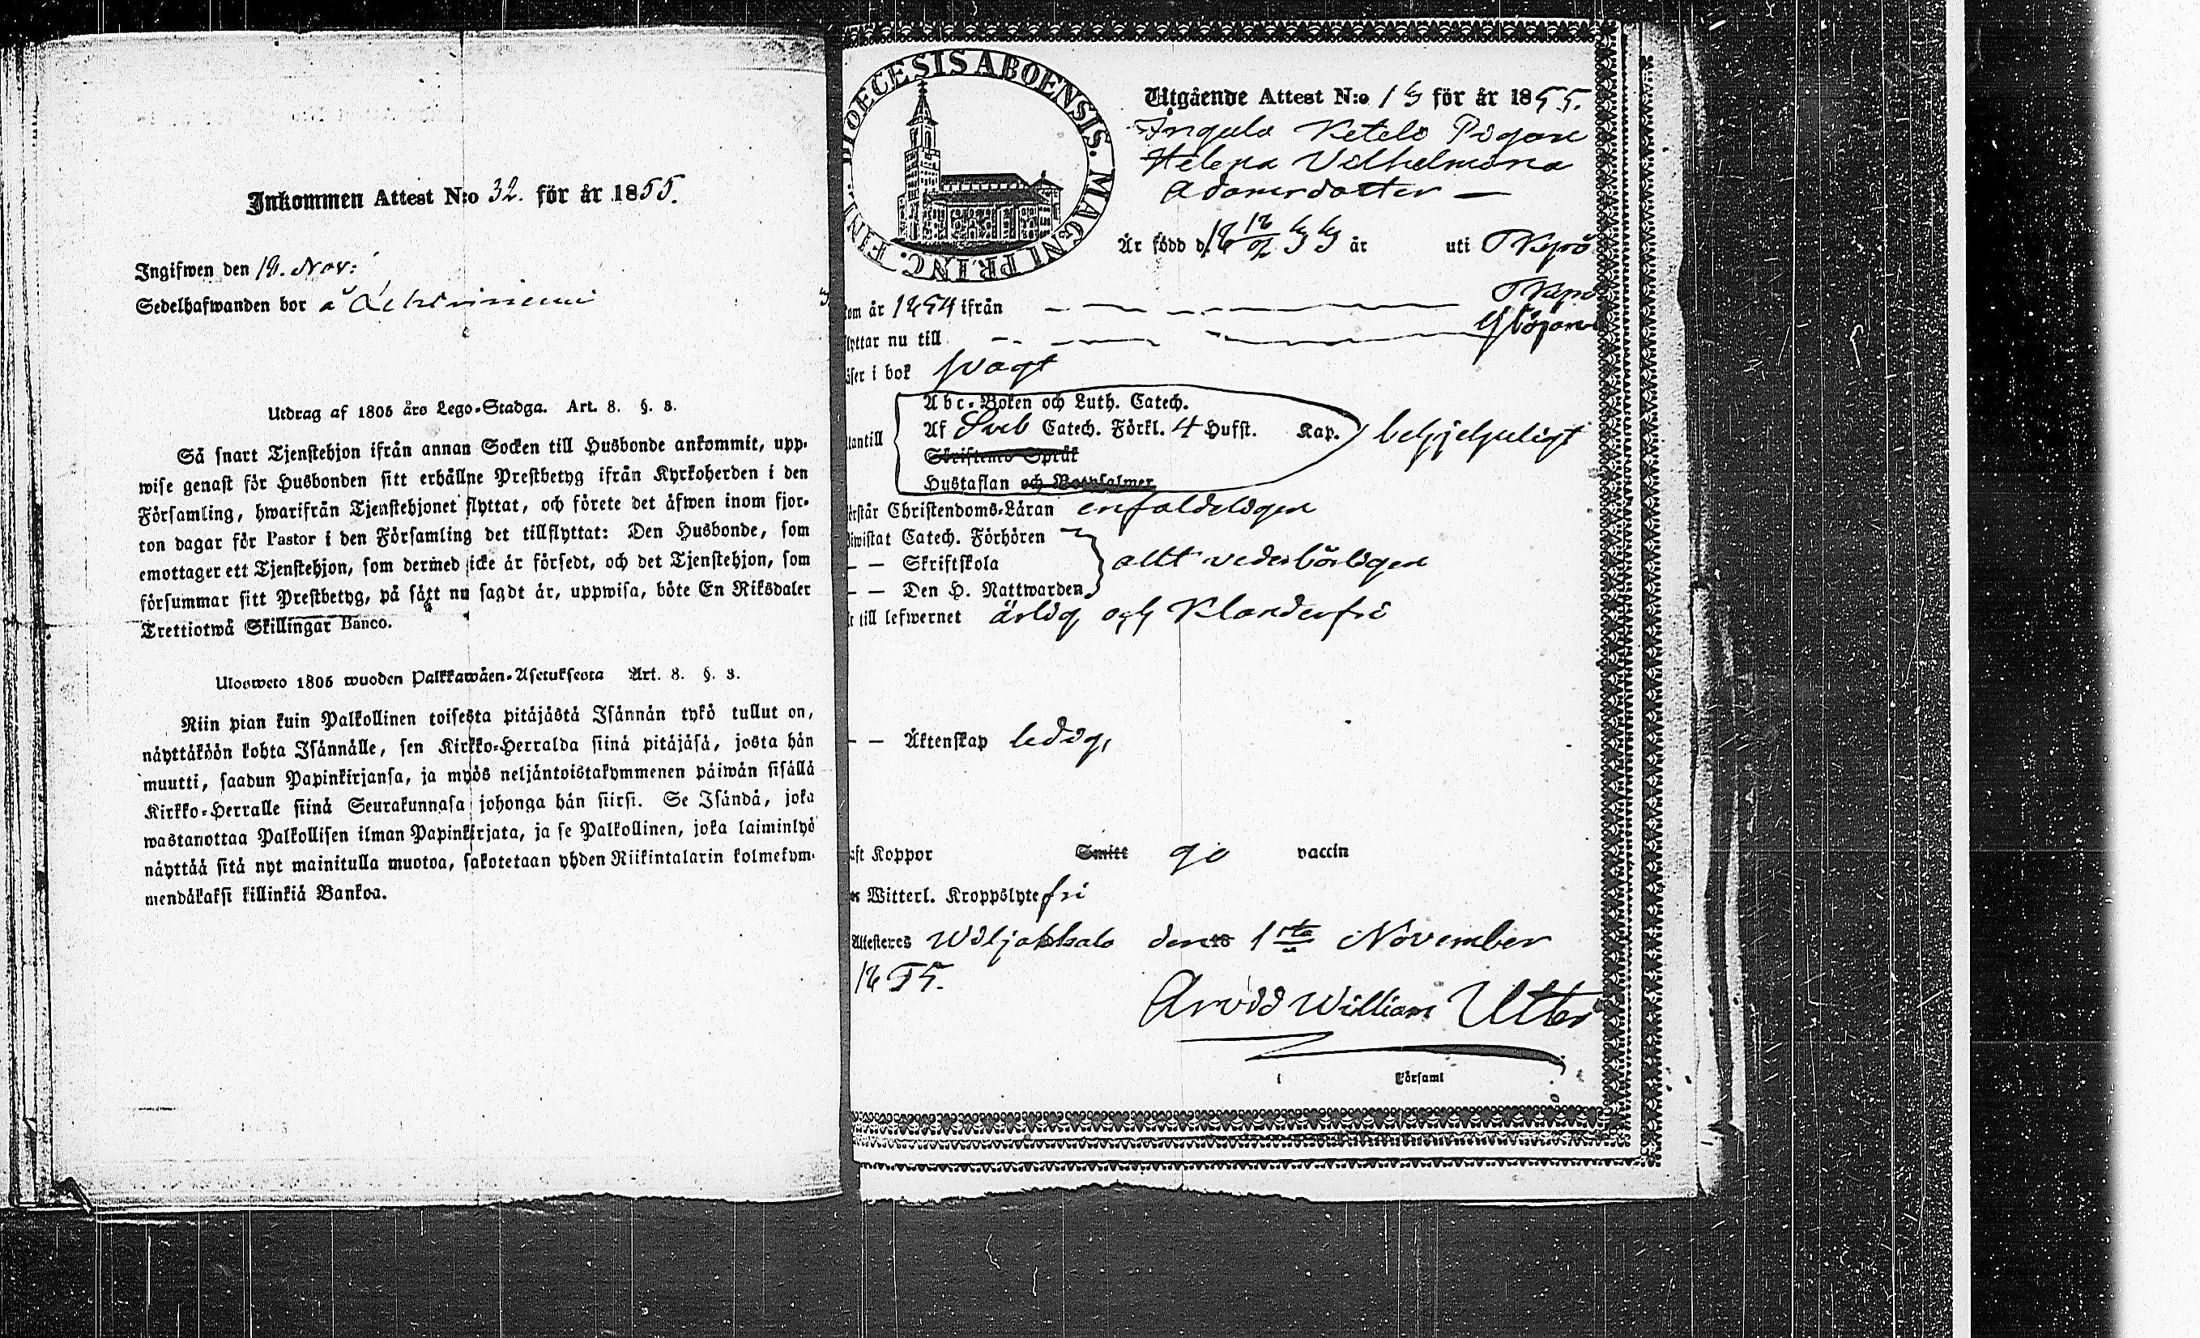 Inkommen Attest N:o 32. för år 1855.
Ingifwen den Nov:
Sedelhafwanden bor å
Utdrag af 1805 års Lego-Stadga. Art. 8. §. 3.
Så snart Tjenstehjon ifrån annan Socken till Husbonde ankommit, upp-
wise genast för Husbonden sitt erhållne Prestbetyg ifrån Kyrkoherden i den
Församling, hwarifrån Tjenstehjonet flyttat, och förete det äfwen inom fjor-
ton dagar för Pastor i den Församling det tillflyttat: Den Husbonde, som
emottager ett Tjenstehjon, som dermed icke är försedt, och det Tjenstehjon, som
försummar sitt Prestbetyg, på sätt nu sagdt är, uppwisa, böte En Riksdaler
Trettiotwå Skillingar Banco.
Ulosweto 1805 wuoden Palkkawäen-Asetuksesta Art. 8. §. 3.
Niin pian kuin Palkollinen toisesta pitäjästä Isännän tykö tullut on,
näyttäköön kohta Isännälle, sen Kirkko-Herralda siinä pitäjäsä, josta hän
muutti, saadun Papinkirjansa, ja myös neljäntoistakymmenen päiwän sisällä
Kirkko-Herralle siinä Seurakunnasa johonga hän siirsi. Se Isändä, joka
wastanottaa Palkollisen ilman Papinkirjata, ja se Palkollinen, joka laiminlyö
näyttää sitä nyt mainitulla muotoa, sakotetaan yhden Riikintalarin kolmekym-
mendäkaksi killinkiä Bankoa.
DIOECESIS ABOENSIS. MAGNI PRINC. FINL.
Utgående Attest N:o för år 1855.
Pigan
Helena Vilhelmina
Adamsdotter —
Är född d. år uti
om år 1854 ifrån
lyttar nu till
äser i bok svagt
Abc-Boken och Luth. Catech.
antill Af Sveb Catech. Förkl. 4 Hufst. Kap. behjelpligt
Christendoms Språk
Hustaflan och Botpsalmer
örstår Christendoms-Läran enfaldeligen
iwistat Catech. Förhören
— — Skriftskola allt vederbörligen
— — Den H. Nattwarden
till lefwernet ärlig och klanderfri
— — Äktenskap ledig,
aft Koppor Smitt vaccin
Witterl. Kroppslyte fri
Attesteras Wiljakkala den 1sta November
1855.
Arvid William
i Församl